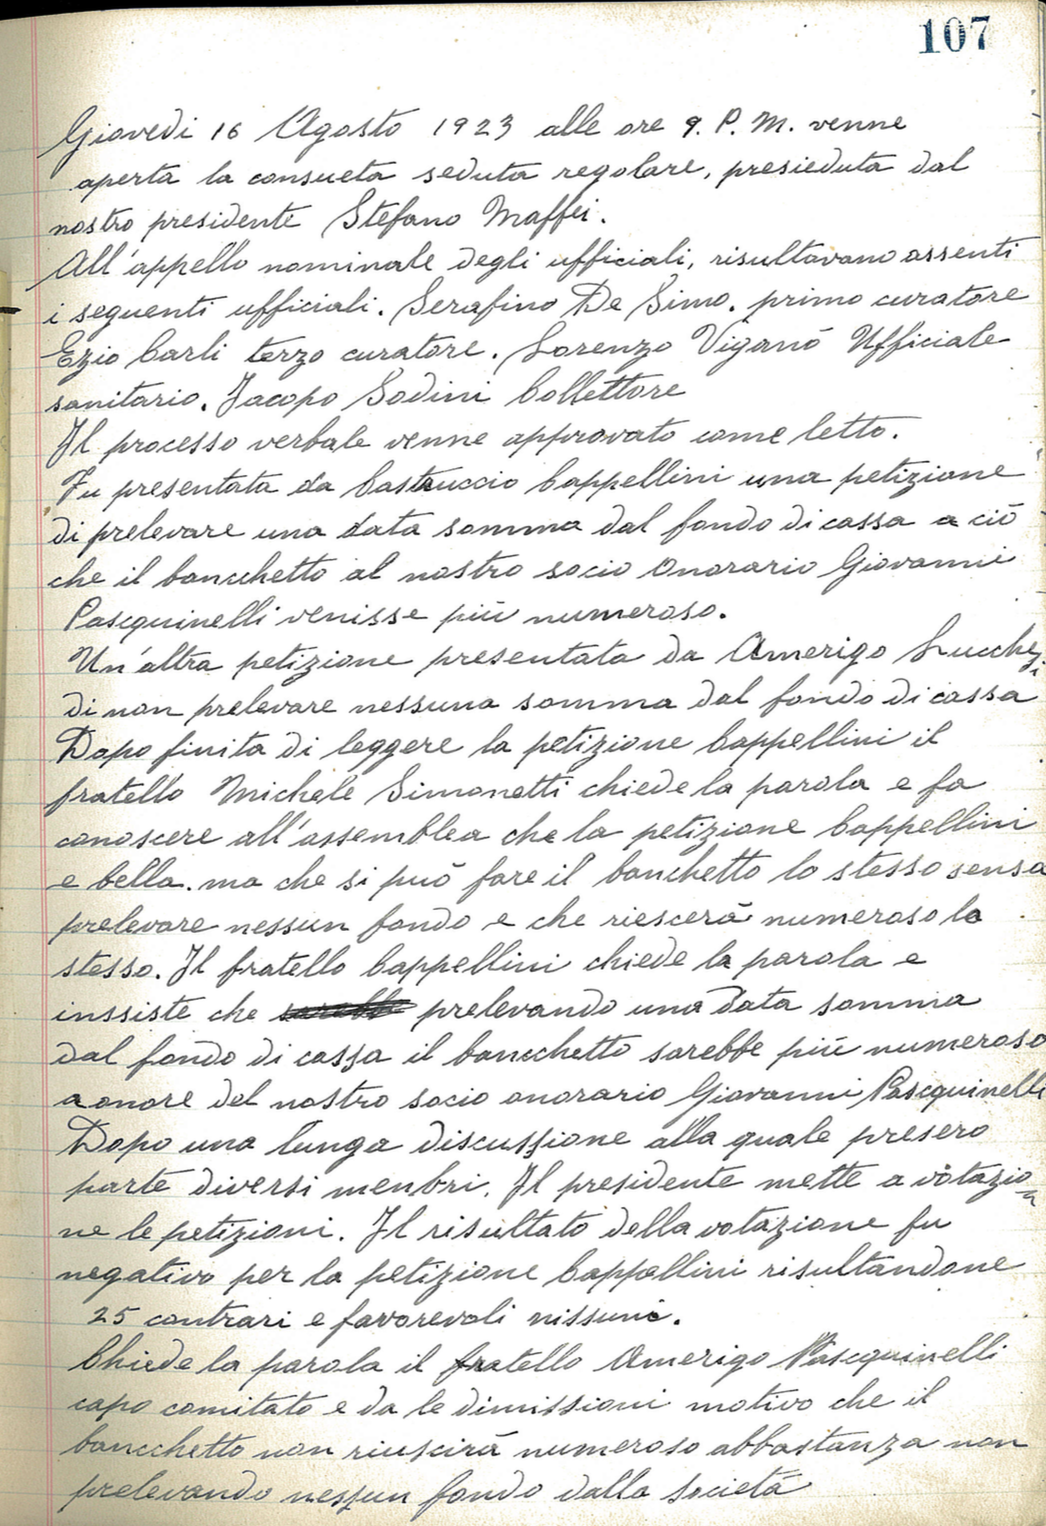 107
Giovedi 16 Agosto 1923 alle ore 9. P. M. venne
aperta la consueta seduta regolare, presieduta dal
nostro presidente Stefano Maffei.
All'appello nominale degli ufficiali, risultavano assenti
i seguenti ufficiali. Serafino De Simo. primo curatore
Ezio Carli terzo curatore. Lorenzo Viganò Ufficiale
sanitario. Jacopo Sodini Collettore
Il processo verbale venne approvato come letto.
Fu presentata da Castruccio Cappellini una petizione
di prelevare una data somma dal fondo di cassa a ciò
che il bancchetto al nostro socio Onorario Giovanni
Pascquinelli venisse più numeroso.
Un'altra petizione presentata da Amerigo Lucchesi
di non prelevare nessuna somma dal fondo di cassa
Dopo finita di leggere la petizione Cappellini il
fratello Michele Simonetti chiede la parola e fa
conoscere all'assemblea che la petizione Cappellini
e bella. ma che si può fare il banchetto lo stesso sensa
prelevare nessun fondo e che riescerà numeroso lo
stesso. Il fratello Cappellini chiede la parola e
inssiste che prelevando una data somma
dal fondo di cassa il bancchetto sarebbe più numeroso
a onore del nostro socio onorario Giovanni Pascquinelli
Dopo una lunga discussione alla quale presero
parte diversi menbri. Il presidente mette a votazio=
ne le petizioni. Il risultato della votazione fu
negativo per la petizione Cappellini risultandone
25 contrari e favorevoli nissuno.
Chiede la parola il fratello Amerigo Pascquinelli
capo comitato e da le dimissioni motivo che il
bancchetto non riuscirà numeroso abbastanza non
prelevando nessun fondo dalla Società